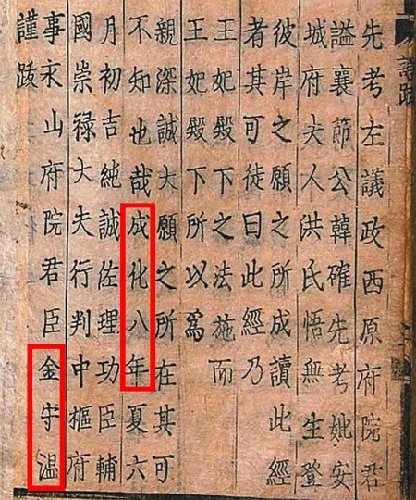 先考左議政西原府院君
謚襄節公韓確先考妣安
城府夫人洪氏悟無生登
彼岸之願之所成讀此經
者其可徒曰此經乃
王妃殿下之法施而
王妃殿下所以爲
親深誠大願之所在其可
不知也哉成化八年夏六
月初吉純誠佐理功臣輔
國崇禄大夫行判中樞府
事永山府院君臣金守温
謹跋